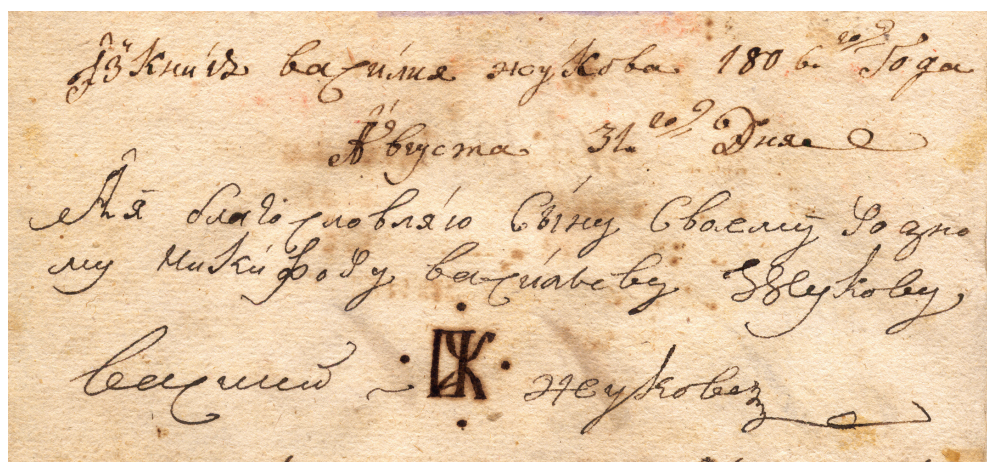 Изъ книгъ василия жукова 1806 го Года
Августа 31 го Дня
А я благословляю Сыну Своему родно
му никифору васильеву Жукову
василий жуковъ